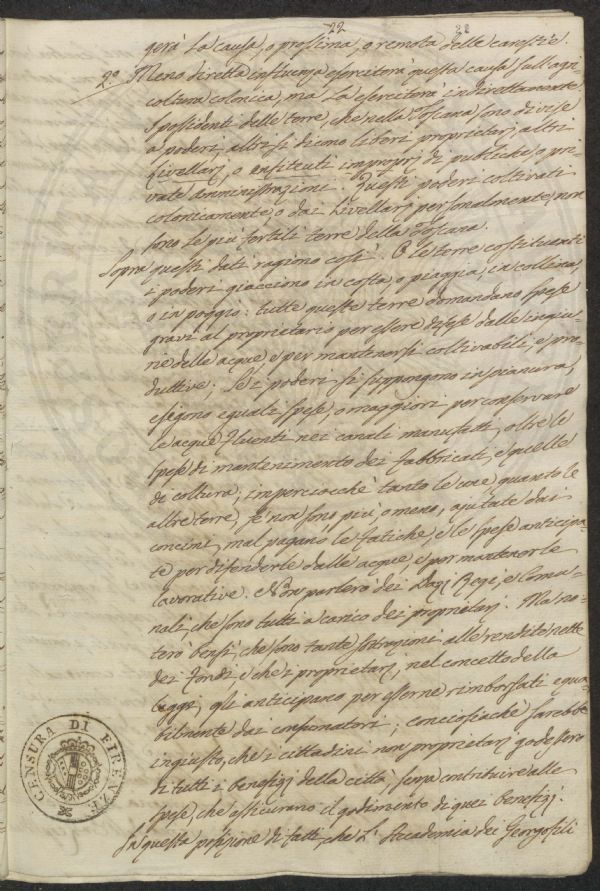 22
22
gerà la causa, o prossima, o remota delle carestie.
2.o Meno diretta influenza eserciterà questa causa sull'agri-
coltura colonica, ma la eserciterà indirettamente.
I possidenti delle terre, che nella Toscana sono divise
a poderi, altri si dicono liberi proprietarj, altri
livellarj, o enfiteuti improprj di pubbliche, o pri-
vate amministrazioni. Questi poderi coltivati
colonicamente, o dai livellarj personalmente, non
sono le più fertili terre della Toscana.
Sopra questi dati ragiono così. O le terre costituenti
i poderi giacciono in costa, o piaggia, in collina,
o in poggio: tutte queste terre domandano spese
gravi al proprietario per essere difese dalle ingiu-
rie delle acque, e per mantenersi coltivabili, e pro-
duttive; Se i poderi si suppongono in pianura,
esigono eguali spese, o maggiori per conservare
le acque fluenti nei canali manufatti, oltre le
spese di mantenimento dei fabbricati, e quelle
di coltura, imperciocchè tanto le une quanto le
altre terre, se non sono più, o meno, ajutate dai
concimi, mal pagano le fatiche, e le spese anticipa-
te per difenderle dalle acque, e per mantenerle
lavorative. Non parlerò dei Dazj Regj, e Comu-
nali, che sono tutti a carico dei proprietarj. Ma no-
terò bensì, che sono tante sottrazioni alle rendite nette
dei fondi, e che i proprietarj, nel concetto della
legge, gli anticipano per esserne rimborsati equa-
bilmente dai consumatori; conciosiachè sarebbe
ingiusto, che i cittadini non proprietarj godessero
di tutti i benefizj della città, senza contribuire alle
spese, che assicurano il godimento di quei benefizj.
In questa posizione di fatti, che l'Accademia dei Georgofili
CENSURA DI FIRENZE